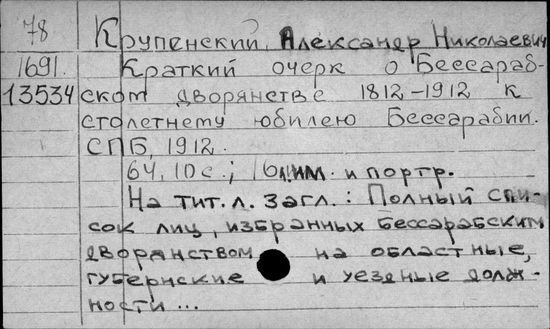 78 Крупенский, Александр Николаевич
1691. Краткий очерк о Бессараб-
13534 ском дворянстве 1812,-1912 к
столетнему юбилею Бессарабии.
СПБ, 1912.
64, 10 с.; 16 л. илл. и портр.
На тит. л. загл.: Полный спи-
сок лиц, избранных бессарабским
дворянством на областные,
губернские и уездные долж-
ности ...